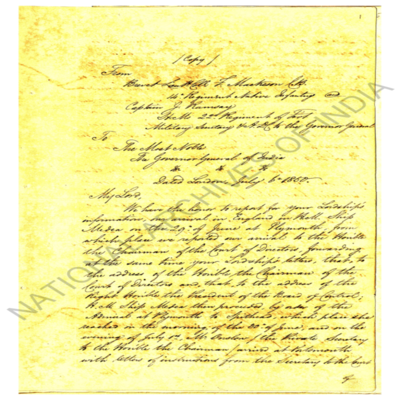 1
[Copy]
From
Brevet Lieut Col. F. Mackeson C.B.
14th Regiment Native Infantry and
Captain J. Ramsay
H.M. 22nd Regiment of Foot
Military Secretary & A.D.C. to the Governor General
To
The Most Noble
The Governor General of India
&c &c &c
Dated London July 6th 1850.
My Lord,
We have the honor to report for your Lordship's
information our arrival in England in Her Maj. Ship
Medea on the 29th of June at Plymouth, from
which place we reported our arrival to the Hon'ble
the Chairman of the Court of Directors, forwarding
at the same time your Lordship's letters, that to
the address of the Hon'ble the Chairman of the
Court of Directors and that to the address of the
Right Hon'ble the President of the Board of Control.
H.M. Ship Medea then proceeded by order of the
Admiral at Plymouth to Spithead, which place she
reached in the morning of the 30th of June, and on the
evening of July 1st Mr. Onslow, the Private Secretary
to the Hon'ble the Chairman arrived at Portsmouth
with letter of instructions from the Secretary to the Court
of
NATIONAL ARCHIVES OF INDIA